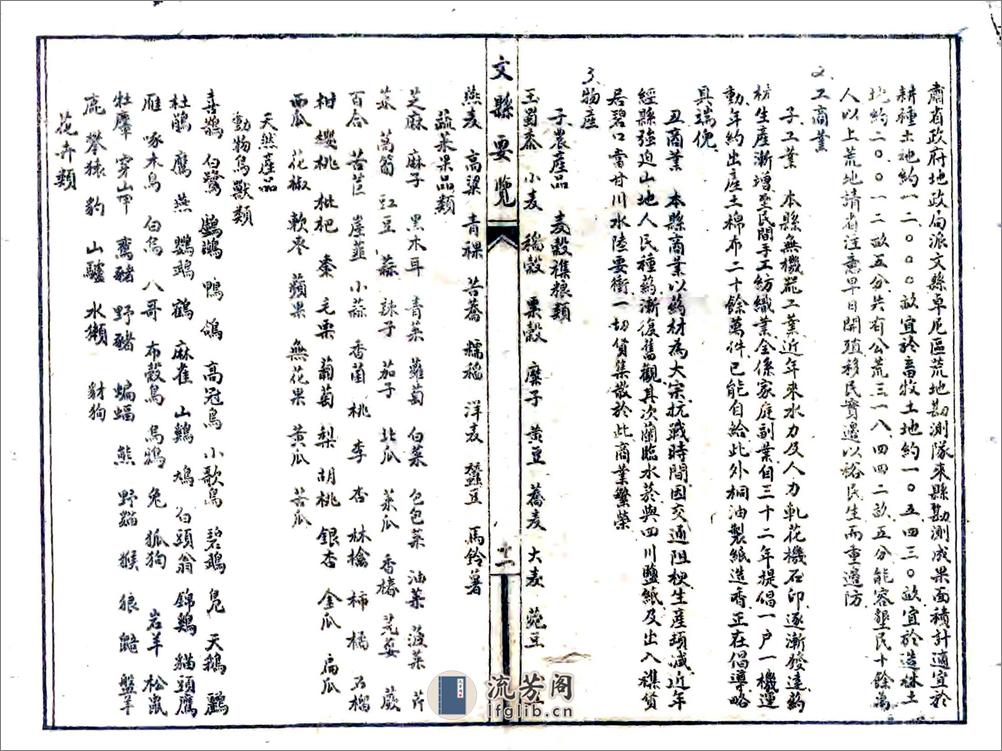 肅省政府地政局派文縣卓尼區荒地勘測隊來縣勘測成果面積計適宜於
耕種土地約一二〇〇〇畝宜於畜牧土地約一〇五四三〇畝宜於造林土
地約二〇〇一二畝五分共有公荒三一八四四二畝五分能容墾民十餘萬
人以上荒地請省注意早日開殖移民實邊以裕民生而重邊防
2、工商業
子工業 本縣無機器工業近年來水力及人力軋花機石印逐漸發達約
紡生產漸增至民間手工紡織業全係家庭副業自三十二年提倡一戶一機運
動年約出產土棉布二十餘萬件已能自給此外桐油製紙造香正在倡導略
具端倪
丑商業 本縣商業以葯材為大宗抗戰時間因交通阻梗生產頓減近年
經縣強迫山地人民種葯漸復舊觀其次蘭臨水菸與四川鹽紙及出入雜貨
若碧口當甘川水陸要衝一切貨集散於此商業繁榮
3、物產
子農產品 麦穀雜粮類
玉蜀黍 小麦 稻穀 粟穀 糜子 黄豆 蕎麦 大麦 菀豆
文縣要覽
十二
燕麦 高粱 青稞 苦蕎 糯稻 洋麦 蠶豆 馬鈴薯
蔬菜果品類
芝麻 麻子 黑木耳 青菜 蘿蔔 白菜 包包菜 油菜 菠菜 芹
菜 萵筍 紅豆 蒜 辣子 茄子 北瓜 菜瓜 香椿 芫荽 蕨
百合 苦苣 崖韮 小蒜 香菌 桃 李 杏 林檎 柿 橘 石榴
柑 櫻桃 枇杷 棗 毛栗 葡萄 梨 胡桃 銀杏 金瓜 扁瓜
西瓜 花椒 軟枣 蘋果 無花果 黄瓜 苦瓜
天然產品
動物鳥獸類
喜鵲 白鷺 鸕鷀 鴨 鴿 高冠鳥 小歌鳥 碧鷄 凫 天鵝 鸝
杜鵑 鷹 燕 鸚鵡 鶴 麻雀 山鷄 鳩 白頭翁 錦鷄 貓頭鷹
雁 啄木鳥 白鳥 八哥 布穀鳥 烏鴉 兔 狐狗 岩羊 松鼠
牡麞 穿山甲 鸞豬 野豬 蝙蝠 熊 野貓 猴 狼 盤羊
鹿 豹 山驢 水獺 豺狗
花卉類
流芳阁
lfglib.cn